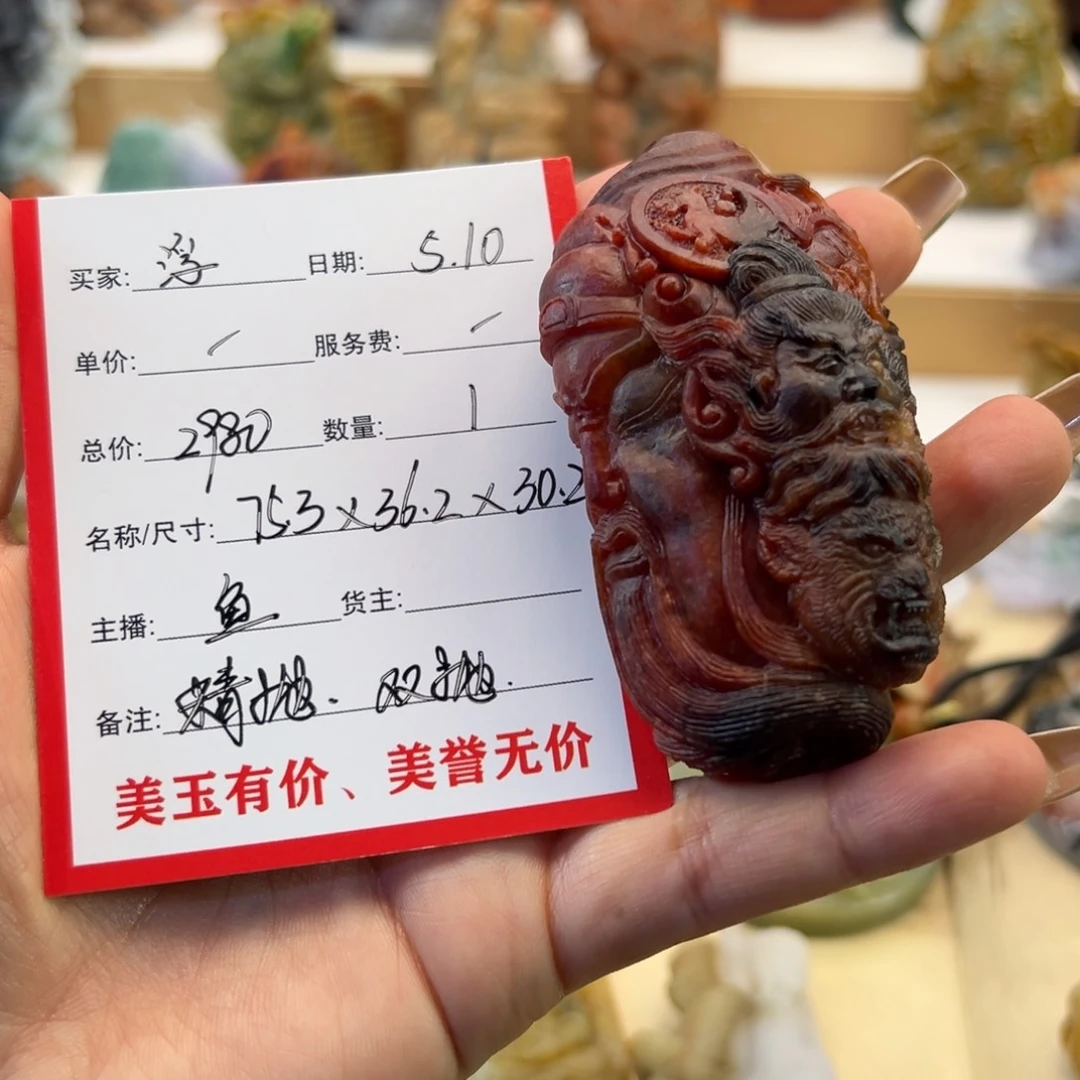 买家: 浮 日期: 5.10
单价: / 服务费: /
总价: 2980 数量: 1
名称/尺寸: 75.3×36.2×30.2
主播: 鱼 货主:
备注: 精抛. 双抛.
美玉有价、美誉无价